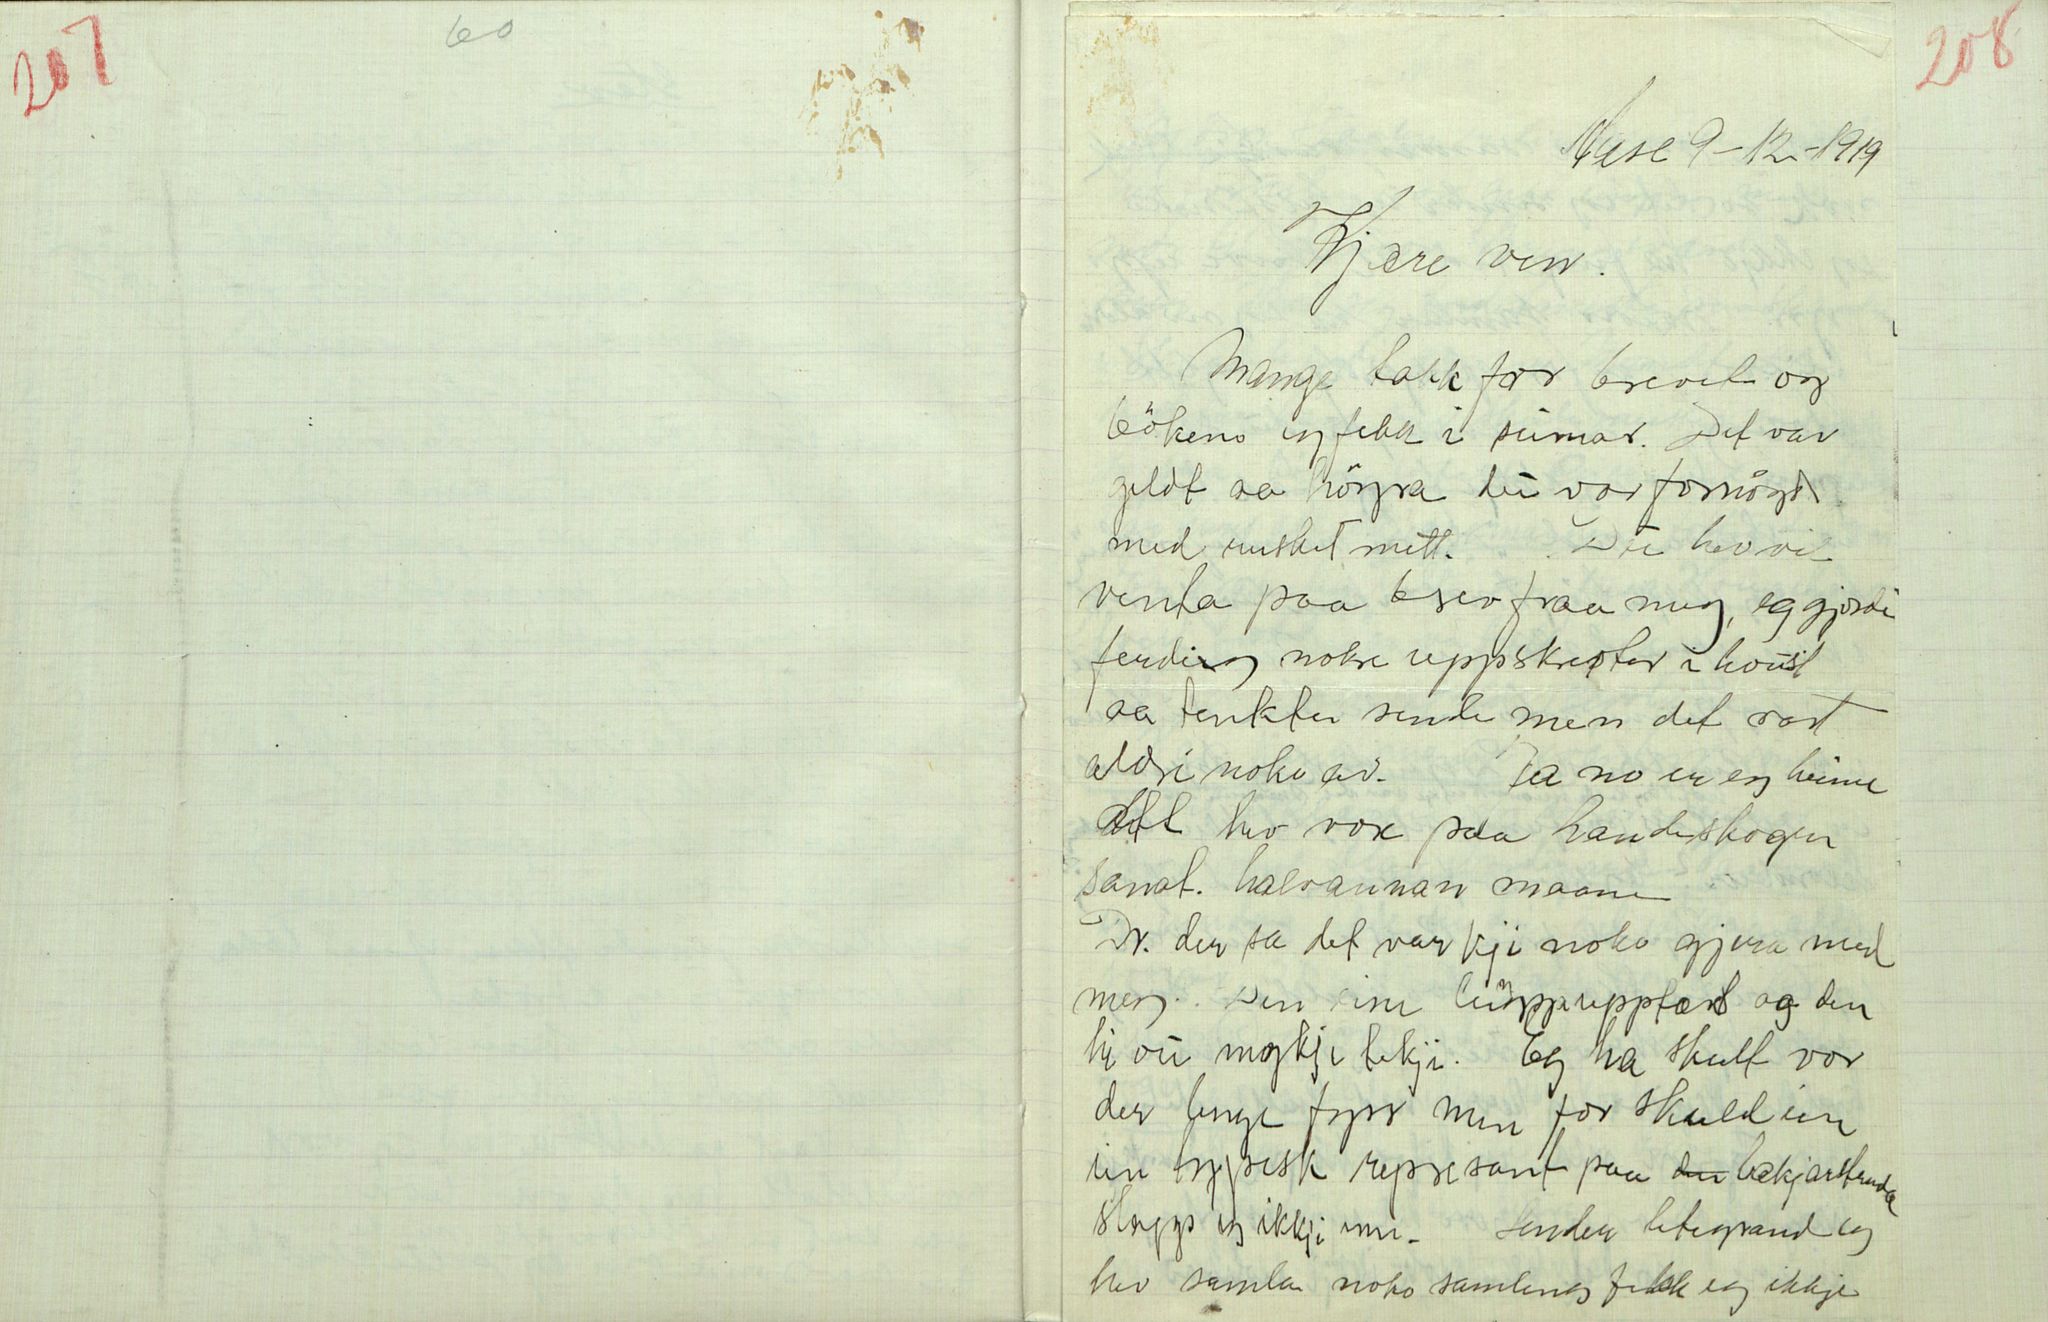 207
60
208
9-12-1919
Kjære ven.
Mange takk for brevet og
bökene eg fekk i sumar. Det var
gildt aa höyra du var fornögd
med rusket mitt. Du hev vel
venta paa brev fraa meg, eg gjorde
ferdig nokre uppskrifter i houst
aa tenkte sende men det vart
aldri noko av. Ja no er eg heime
att hev vore paa Landeskogen
Sanat. halvannan maane
Dr. der sa det var kji noko gjera med
meg. Den eine lunga upptærd og den
hi ou mykje tekji. Eg ha skult vor
der lenge fyrr men for skuld ein
ein typisk represant paa bekjarstanda
slapp eg ikkji inn. Sender litegrand eg
hev samla noko samling fekk eg ikkje